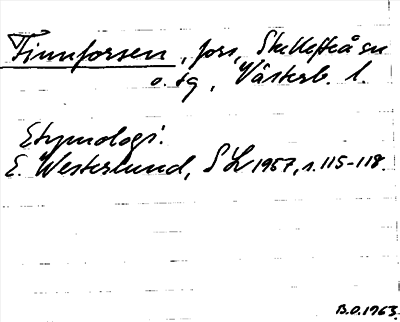 Finnforsen, fors, Skellefteå sn
o. tg, Västerb. l.
Etymologi.
E. Westerlund, SL 1957, s. 115-118.
B.O. 1963.